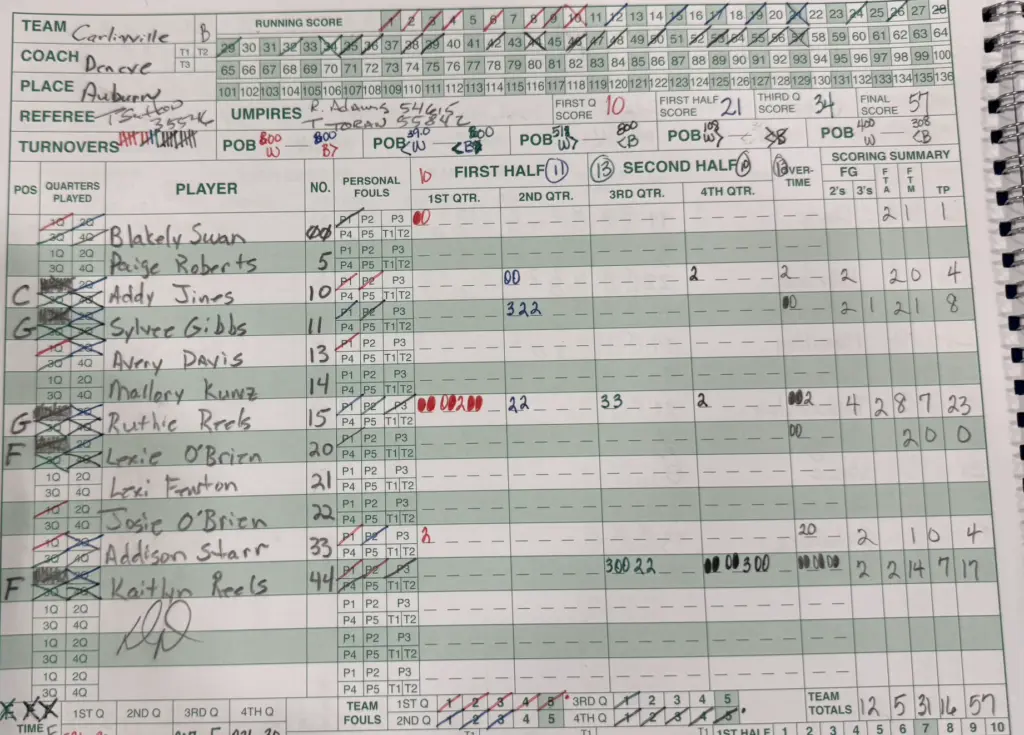 TEAM Carlinville B
RUNNING SCORE 1 2 3 4 5 6 7 8 9 10 11 12 13 14 15 16 17 18 19 20 21 22 23 24 25 26 27 28
COACH Deneve T1 T2 T3
29 30 31 32 33 34 35 36 37 38 39 40 41 42 43 44 45 46 47 48 49 50 51 52 53 54 55 56 57 58 59 60 61 62 63 64
65 66 67 68 69 70 71 72 73 74 75 76 77 78 79 80 81 82 83 84 85 86 87 88 89 90 91 92 93 94 95 96 97 98 99 100
PLACE Auburn
101 102 103 104 105 106 107 108 109 110 111 112 113 114 115 116 117 118 119 120 121 122 123 124 125 126 127 128 129 130 131 132 133 134 135 136
REFEREE T Sutton 35526
UMPIRES R. Adams 54615
T JORAN 55842
FIRST Q SCORE 10 FIRST HALF SCORE 21 THIRD Q SCORE 34 FINAL SCORE 57
TURNOVERS
POB 800 W 800 B> POB 340 <W 800 <B POB 518 W> 800 <B POB 108 W> >B POB 400 W> 308 <B
POS QUARTERS PLAYED PLAYER NO. PERSONAL FOULS 10 FIRST HALF 11 13 SECOND HALF 10 13 OVER-TIME SCORING SUMMARY
1ST QTR. 2ND QTR. 3RD QTR. 4TH QTR. FG 2's 3's FTA FTM TP
1Q 2Q 3Q 4Q Blakely Swan 00 P1 P2 P3 P4 P5 T1 T2 00 2 1 1
1Q 2Q 3Q 4Q Paige Roberts 5 P1 P2 P3 P4 P5 T1 T2
C Addy Jines 10 P1 P2 P3 P4 P5 T1 T2 00 2 2 2 2 0 4
G Sylvee Gibbs 11 P1 P2 P3 P4 P5 T1 T2 322 00 2 1 2 1 8
1Q 2Q 3Q 4Q Avery Davis 13 P1 P2 P3 P4 P5 T1 T2
1Q 2Q 3Q 4Q Mallory Kunz 14 P1 P2 P3 P4 P5 T1 T2
G Ruthie Reels 15 P1 P2 P3 P4 P5 T1 T2 0000200 22 33 2 002 4 2 8 7 23
F Lexie O'Brien 20 P1 P2 P3 P4 P5 T1 T2 00 2 0 0
1Q 2Q 3Q 4Q Lexi Fenton 21 P1 P2 P3 P4 P5 T1 T2
1Q 2Q 3Q 4Q Josie O'Brien 22 P1 P2 P3 P4 P5 T1 T2
1Q 2Q 3Q 4Q Addison Starr 33 P1 P2 P3 P4 P5 T1 T2 2 20 2 1 0 4
F Kaitlyn Reels 44 P1 P2 P3 P4 P5 T1 T2 30022 0000300 0000 2 2 14 7 17
1Q 2Q 3Q 4Q P1 P2 P3 P4 P5 T1 T2
1Q 2Q 3Q 4Q P1 P2 P3 P4 P5 T1 T2
1Q 2Q 3Q 4Q P1 P2 P3 P4 P5 T1 T2
TIME 1ST Q 2ND Q 3RD Q 4TH Q
TEAM FOULS 1ST Q 1 2 3 4 5 3RD Q 1 2 3 4 5
2ND Q 1 2 3 4 5 4TH Q 1 2 3 4 5
TEAM TOTALS 12 5 31 16 57
T1 T1 1ST HALF 1 2 3 4 5 6 7 8 9 10